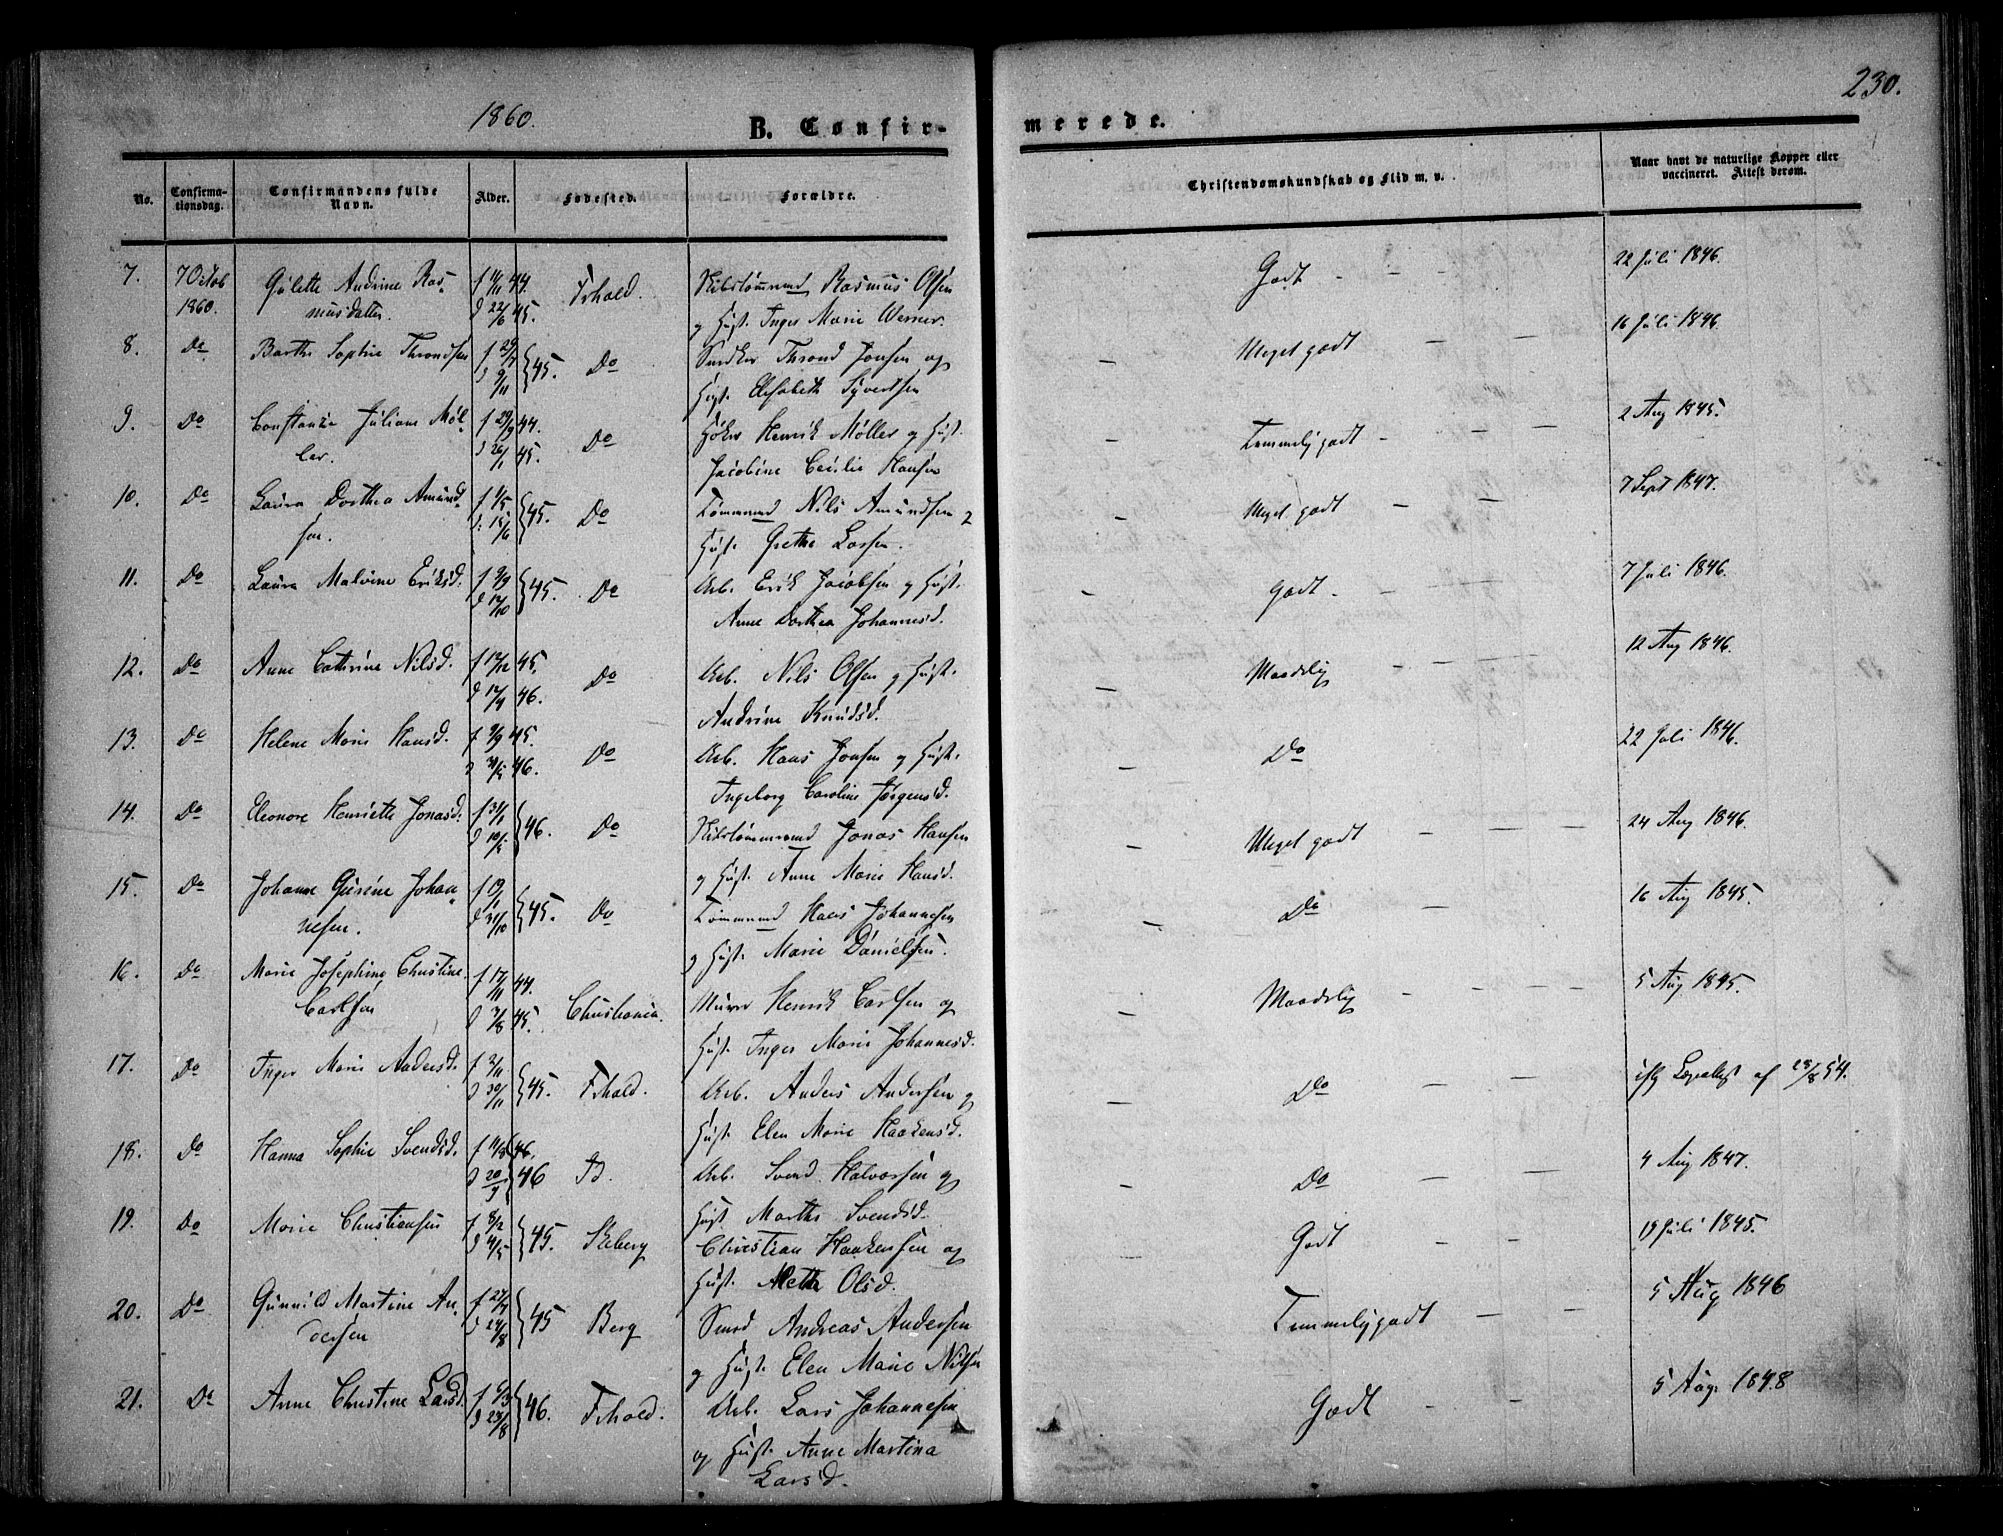 1860.
B. Confir-
merede.
230.
No.
Confirma-
tionsdag.
Confirmandens fulde
Navn.
Alder.
Fødested.
Forældre.
Christendomskundskab og Flid m. v.
Naar havt de naturlige Kopper eller
vaccineret. Attest derom.
7. 7 Octob Gülette Andrine Ras- f 11/11 44. Frhald. Rasmus Olsen Godt - - - 22 Juli 1846.
1860. musdatter. d 22/6 45. og Hust. Inger Marie Werner.
8. Do Barthe Sophie Throndsen f 29/7 } 45. Do Thrond Jonsen og — Meget godt — — — 16 Juli 1846.
d 9/11 Hust. Elisabeth Syvertsen
9. Do Constanze Juliane Møl- f 29/9 44. Do Henrik Møller og Hust. - Temmelig godt - — — 2 Aug 1845.
ler. d 26/1 45. Jacobine Cecilie Hansen
10. Do Laura Dorthea Amund- f 1/5 } 45. Do Tømmermd Nils Amundsen og — Meget godt - — 7 Sept 1847.
sen. d. 15/6 Hust. Grethe Larsen.
11. Do Laura Malvine Eriksd. f 9/9 } 45. Do Arb. Erik Jacobsen og Hust. - godt - 7 Juli 1846.
d 12/10 Anne Dorthea Johannesd.
12. Do Anne Cathrine Nilsd. f 12/12 45. Do Arb. Nils Olsen og Hust. — Maadelig - — — 12 Aug 1846.
d 17/4 46. Andrine Knudsd.
13. Do Helene Marie Hansd. 45. Do Arb. Hans Jonsen og Hust. — Do 22 Juli 1846.
d 31/5 46. Ingeborg Caroline Jørgensd.
14. Do Eleonore Henriette Jonasd. f 31/1 } 46. Do Jonas Hansen — Meget godt - — — 24 Aug 1846.
d 10/5 og Hust. Anne Marie Hansd.
15. Do Johanne Gurine Johan- f 19/1 } 45. Do Tømmermd Hans Johannesen — Do 16 Aug 1845.
nesen. d 31/10 og Hust. Marie Danielsen.
16. Do Marie Josephine Christine f 17/11 44. Christiania. Murer Henrik Carlsen og — Maadelig - - — — 5 Aug 1845.
Carlsen d 3/8 45. Hust. Inger Marie Johannesd.
17. Do Inger Marie Andersd. f 2/11 } 45. Frhald. Arb. Anders Andersen og — Do af 28/8 54.
d 30/11 Hust. Elen Marie Haakensd.
18. Do Hanna Sophie Svendsd. 46. Id. Arb. Svend Halvorsen og - Do — — 4 Aug 1847.
d 20/9 46 Hust. Marthe Svendsd.
19. Do Marie Christiansen f 8/2 } 45. Skeberg Christian Haakensen og Godt — - 19 Juli 1845.
d 4/5 Hust. Mette Olsd.
20. Do Gunnild Martine An- f 27/7 } 45 Berg Smed Andreas Andersen Temmelig godt — — 5 Aug 1846
dersen d 24/8 og Hust. Elen Marie Nilsen
21. Do Anne Christine Larsd. f 6/3 } 46. Frhald. Arb. Lars Johannesen Godt - - 5 Aug. 1848
d 23/8 og Hust. Anne Martina
Larsd.